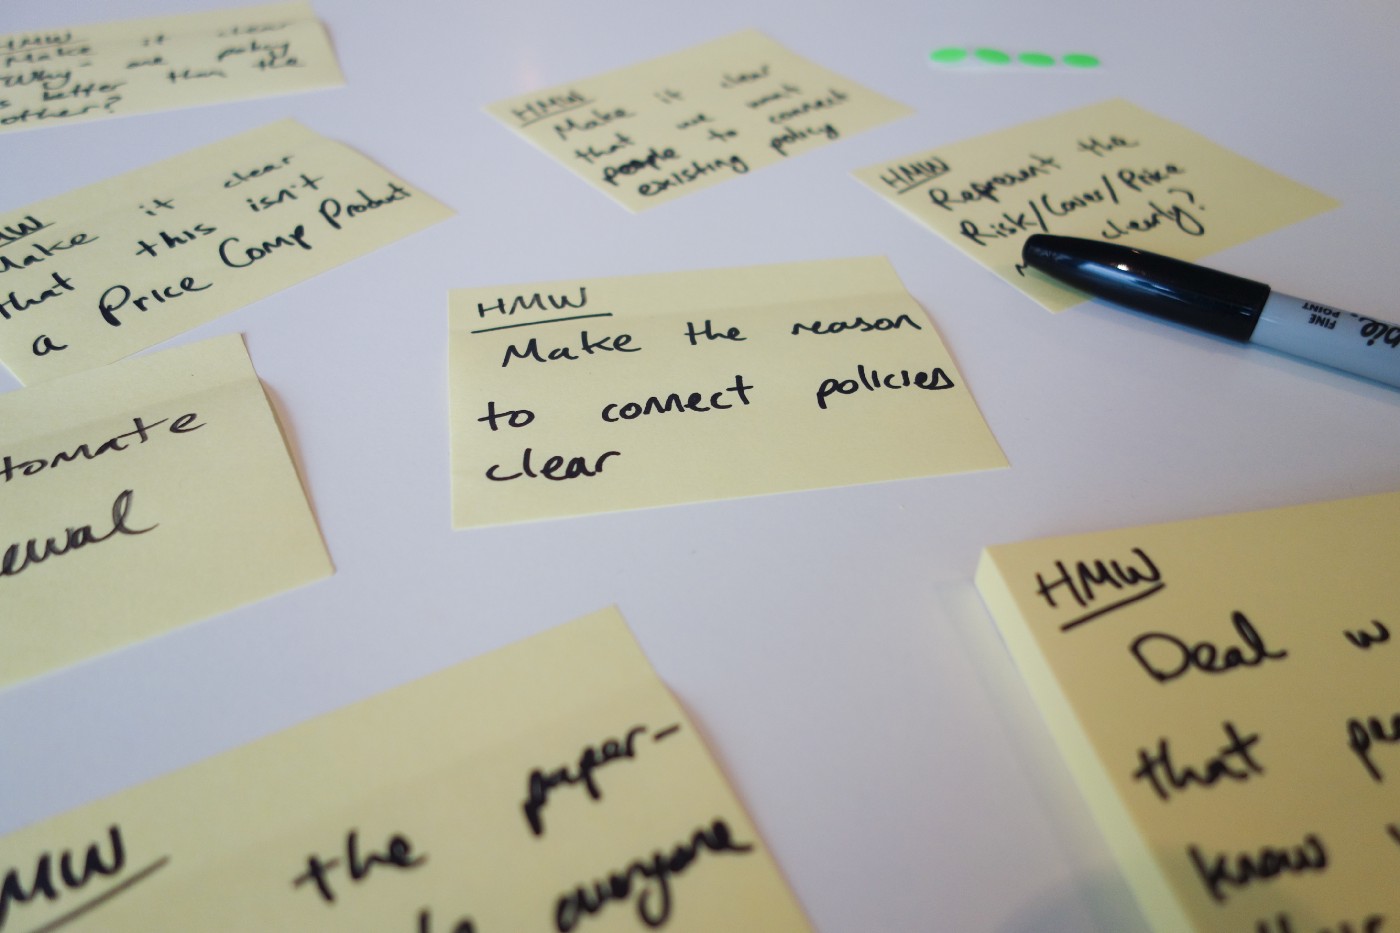 HMW
Make it clear
Why - one policy
is better than the
other?
HMW
Make it clear
that we want
people to connect
existing policy
HMW
Represent the
Risk/Cover/Price
clearly?
HMW
Make it clear
that this isn't
a Price Comp Product
HMW
Make the reason
to connect policies
clear
FINE
POINT
tomate
ewal
HMW
Deal w
that pe
know
HMW
the paper-
everyone